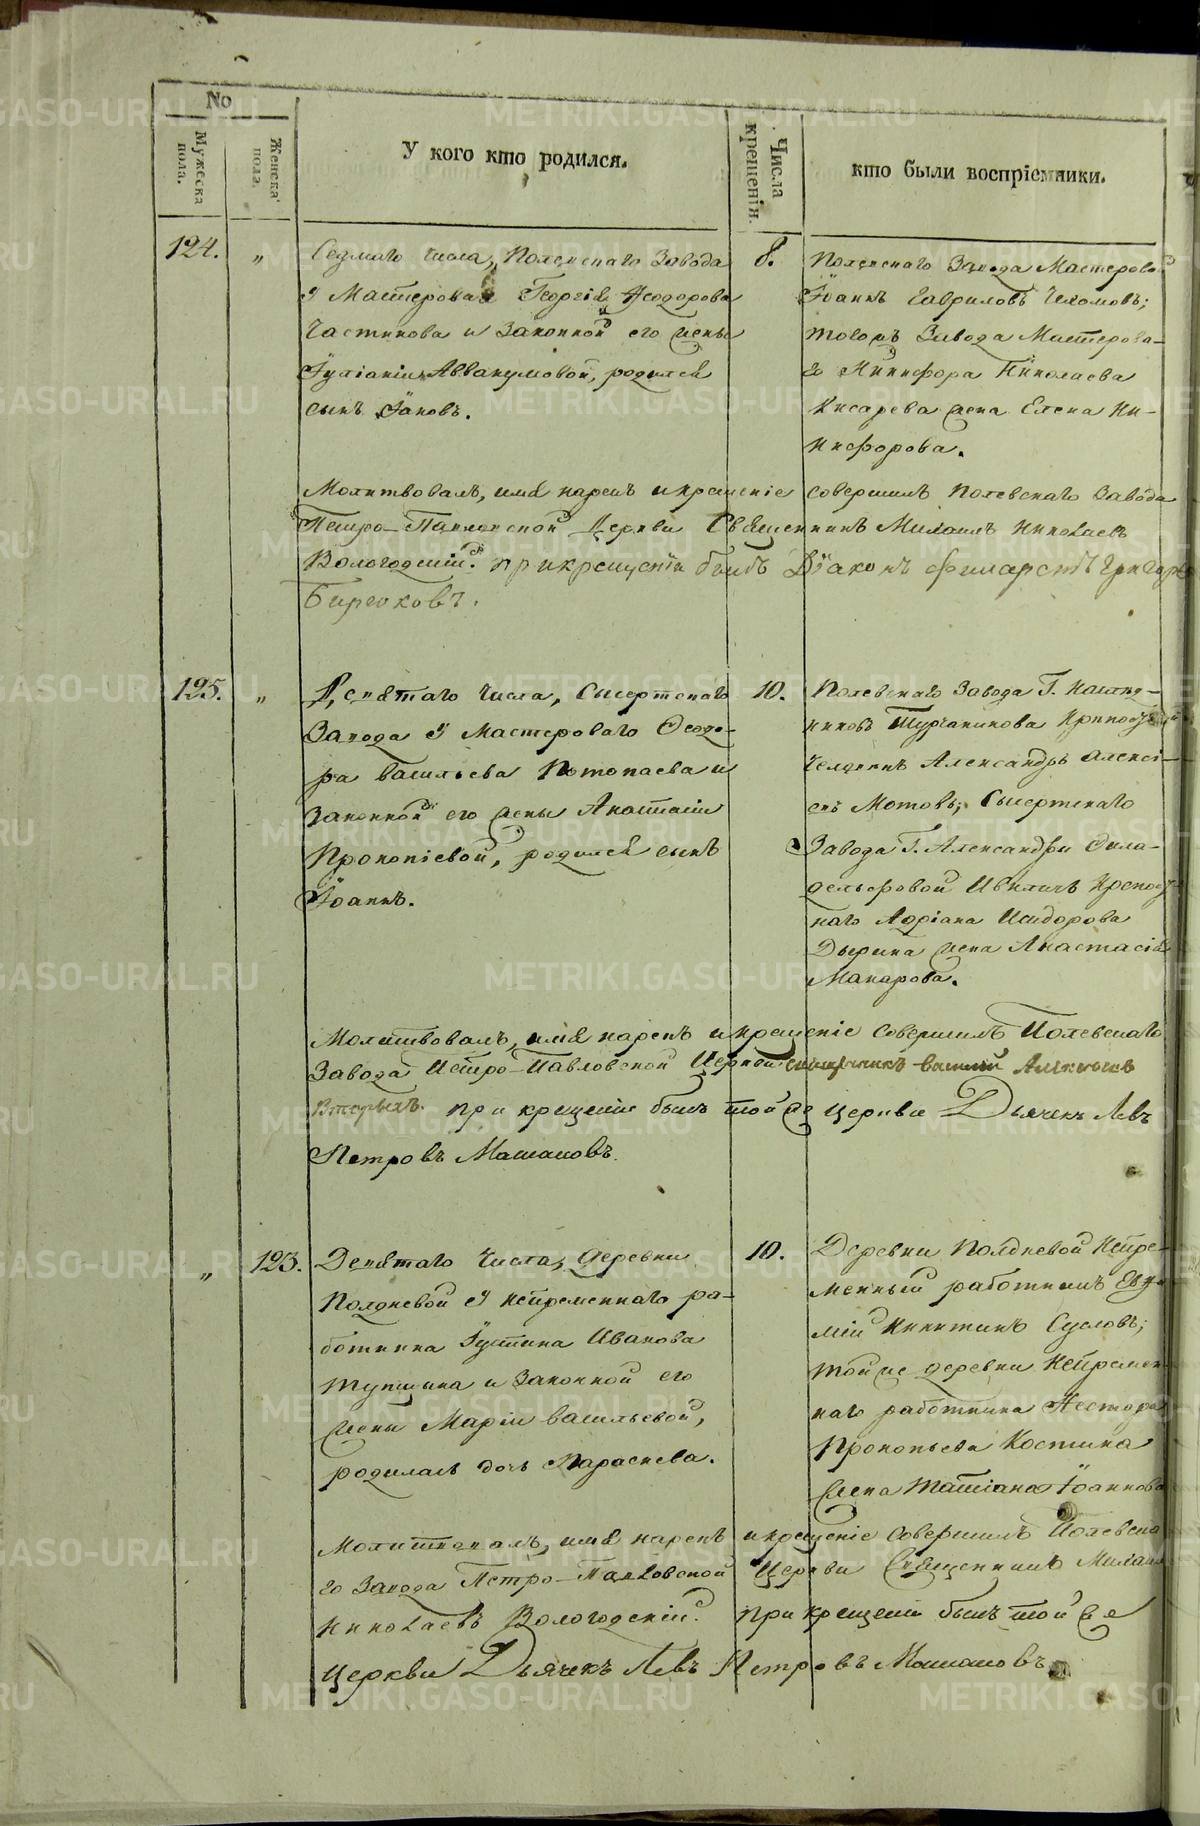 No
Мужеска пола.
Женска пола.
У кого кто родился.
Числа крещенія.
кто были воспріемники.
124.
„
Седмаго числа, Полевскаго Завода
у Мастероваго Георгія Ѳеодорова
Частикова и Законной его жены
Іуліаніи Аввакумовой, родился
сынъ Іаковъ.
8.
Полевскаго Завода Мастеровой
Іоаннъ Гавриловъ Челомовъ;
тогожъ Завода Мастерова-
го Никифора Николаева
Кисарева жена Елена Ни-
кифорова.
Молитвовалъ, имя нарекъ и крещеніе совершилъ Полевскаго Завода
Петро-Павловской Церкви Священникъ Михаилъ Николаевъ
Вологодскій. при крещеніи былъ Діаконъ Филаретъ Григорьевъ
Бирюковъ.
125.
„
Девятаго Числа, Сысертскаго
Завода у Мастероваго Ѳеодо-
ра Васильева Потопаева и
Законной его жены Анастасіи
Прокопіевой, родился сынъ
Іоаннъ.
10.
Полевскаго Завода Г. Наслѣд-
никовъ Турчанинова Крѣпостный
Человекъ Александръ Алексѣ-
евъ Мотовъ; Сысертскаго
Завода Г. Александры Фила-
дельфовой Ивеличъ Крѣпост-
наго Адріана Исидорова
жена Анастасія
Макарова.
Молитвовалъ, имя нарекъ и крещеніе совершилъ Полевскаго
Завода Петро-Павловской Церкви священникъ Василій Алексѣевъ
при крещеніи былъ той же церкви Дьячекъ Левъ
Петровъ Машановъ.
„
123.
Девятаго Числа, деревни
Полдневой у непременнаго ра-
ботника Іустина Иванова
Тупицына и Законной его
жены Маріи Васильевой,
родилась дочь Параскева.
10.
Деревни Полдневой Непре-
менный работникъ Евѳи-
мій Никитинъ Сусловъ;
тойже деревни Непремен-
наго работника Нестора
Прокопьева Костина
жена Татіана Іоаннова
Молитвовалъ, имя нарекъ и крещеніе совершилъ Полевска-
го Завода Петро-Павловской Церкви Священникъ Михаилъ
Николаевъ Вологодскій. при крещеніи былъ той же
церкви Дьячекъ Левъ Петровъ Машановъ.
METRIKI.GASO-URAL.RU